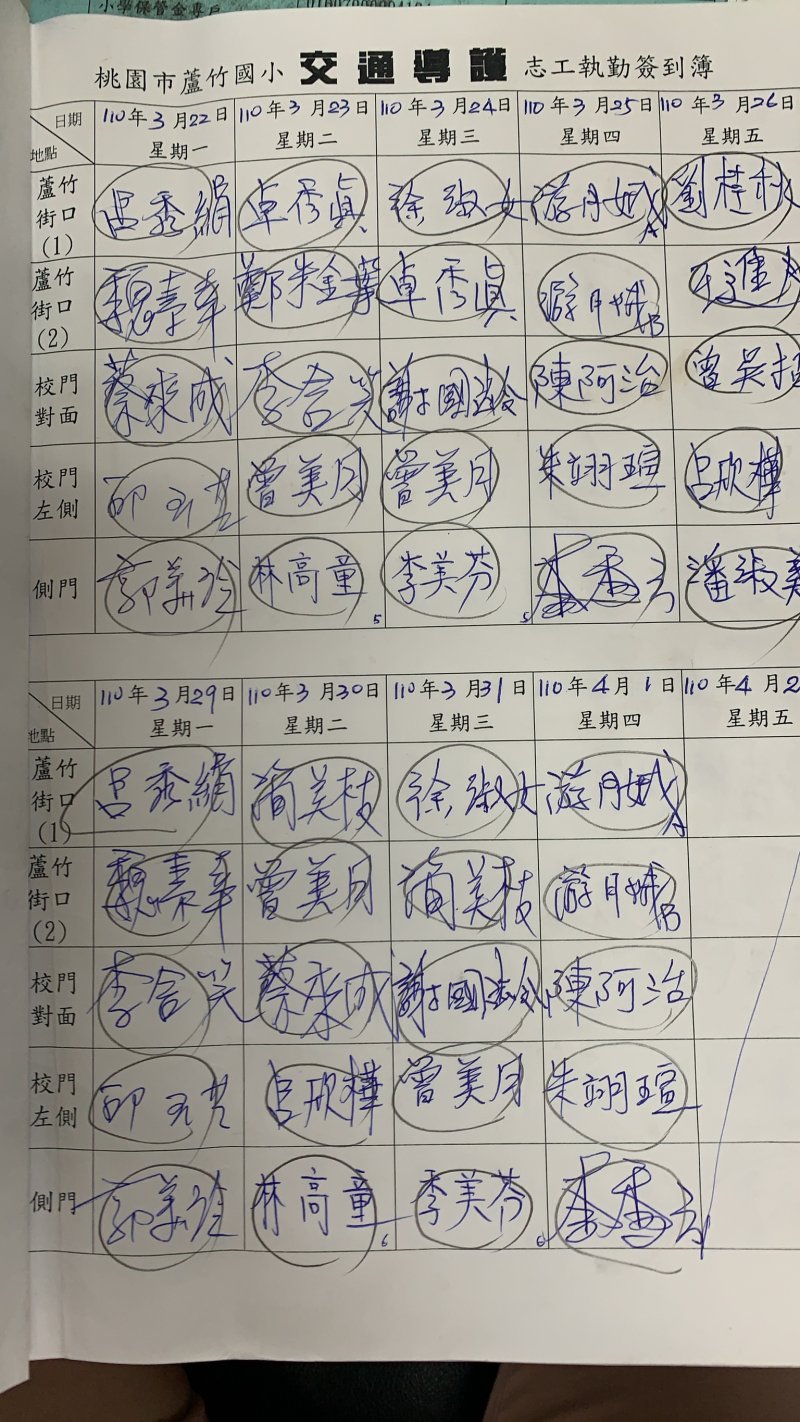 小學保管金專戶
桃園市蘆竹國小 交通導護 志工執勤簽到簿
日期 110年3月22日 110年3月23日 110年3月24日 110年3月25日 110年3月26日
地點 星期一 星期二 星期三 星期四 星期五
蘆竹街口(1) 呂秀絹 卓秀貞 徐淑女 游月娥A 劉桂秋
蘆竹街口(2) 魏素幸 鄭朱金葉 卓秀貞 游月娥B
校門對面 蔡來成 李含笑 謝國玲 陳阿治
校門左側 曾美月 曾美月 朱翊瑄 呂欣樺
側門 林高童 李美芬 潘淑美
5 5
日期 110年3月29日 110年3月30日 110年3月31日 110年4月1日 110年4月2
地點 星期一 星期二 星期三 星期四 星期五
蘆竹街口(1) 呂秀絹 簡美枝 徐淑女 游月娥A
蘆竹街口(2) 魏素幸 曾美月 簡美枝 游月娥B
校門對面 李含笑 蔡來成 謝國玲 陳阿治
校門左側 呂欣樺 曾美月 朱翊瑄
側門 林高童 李美芬
6 6